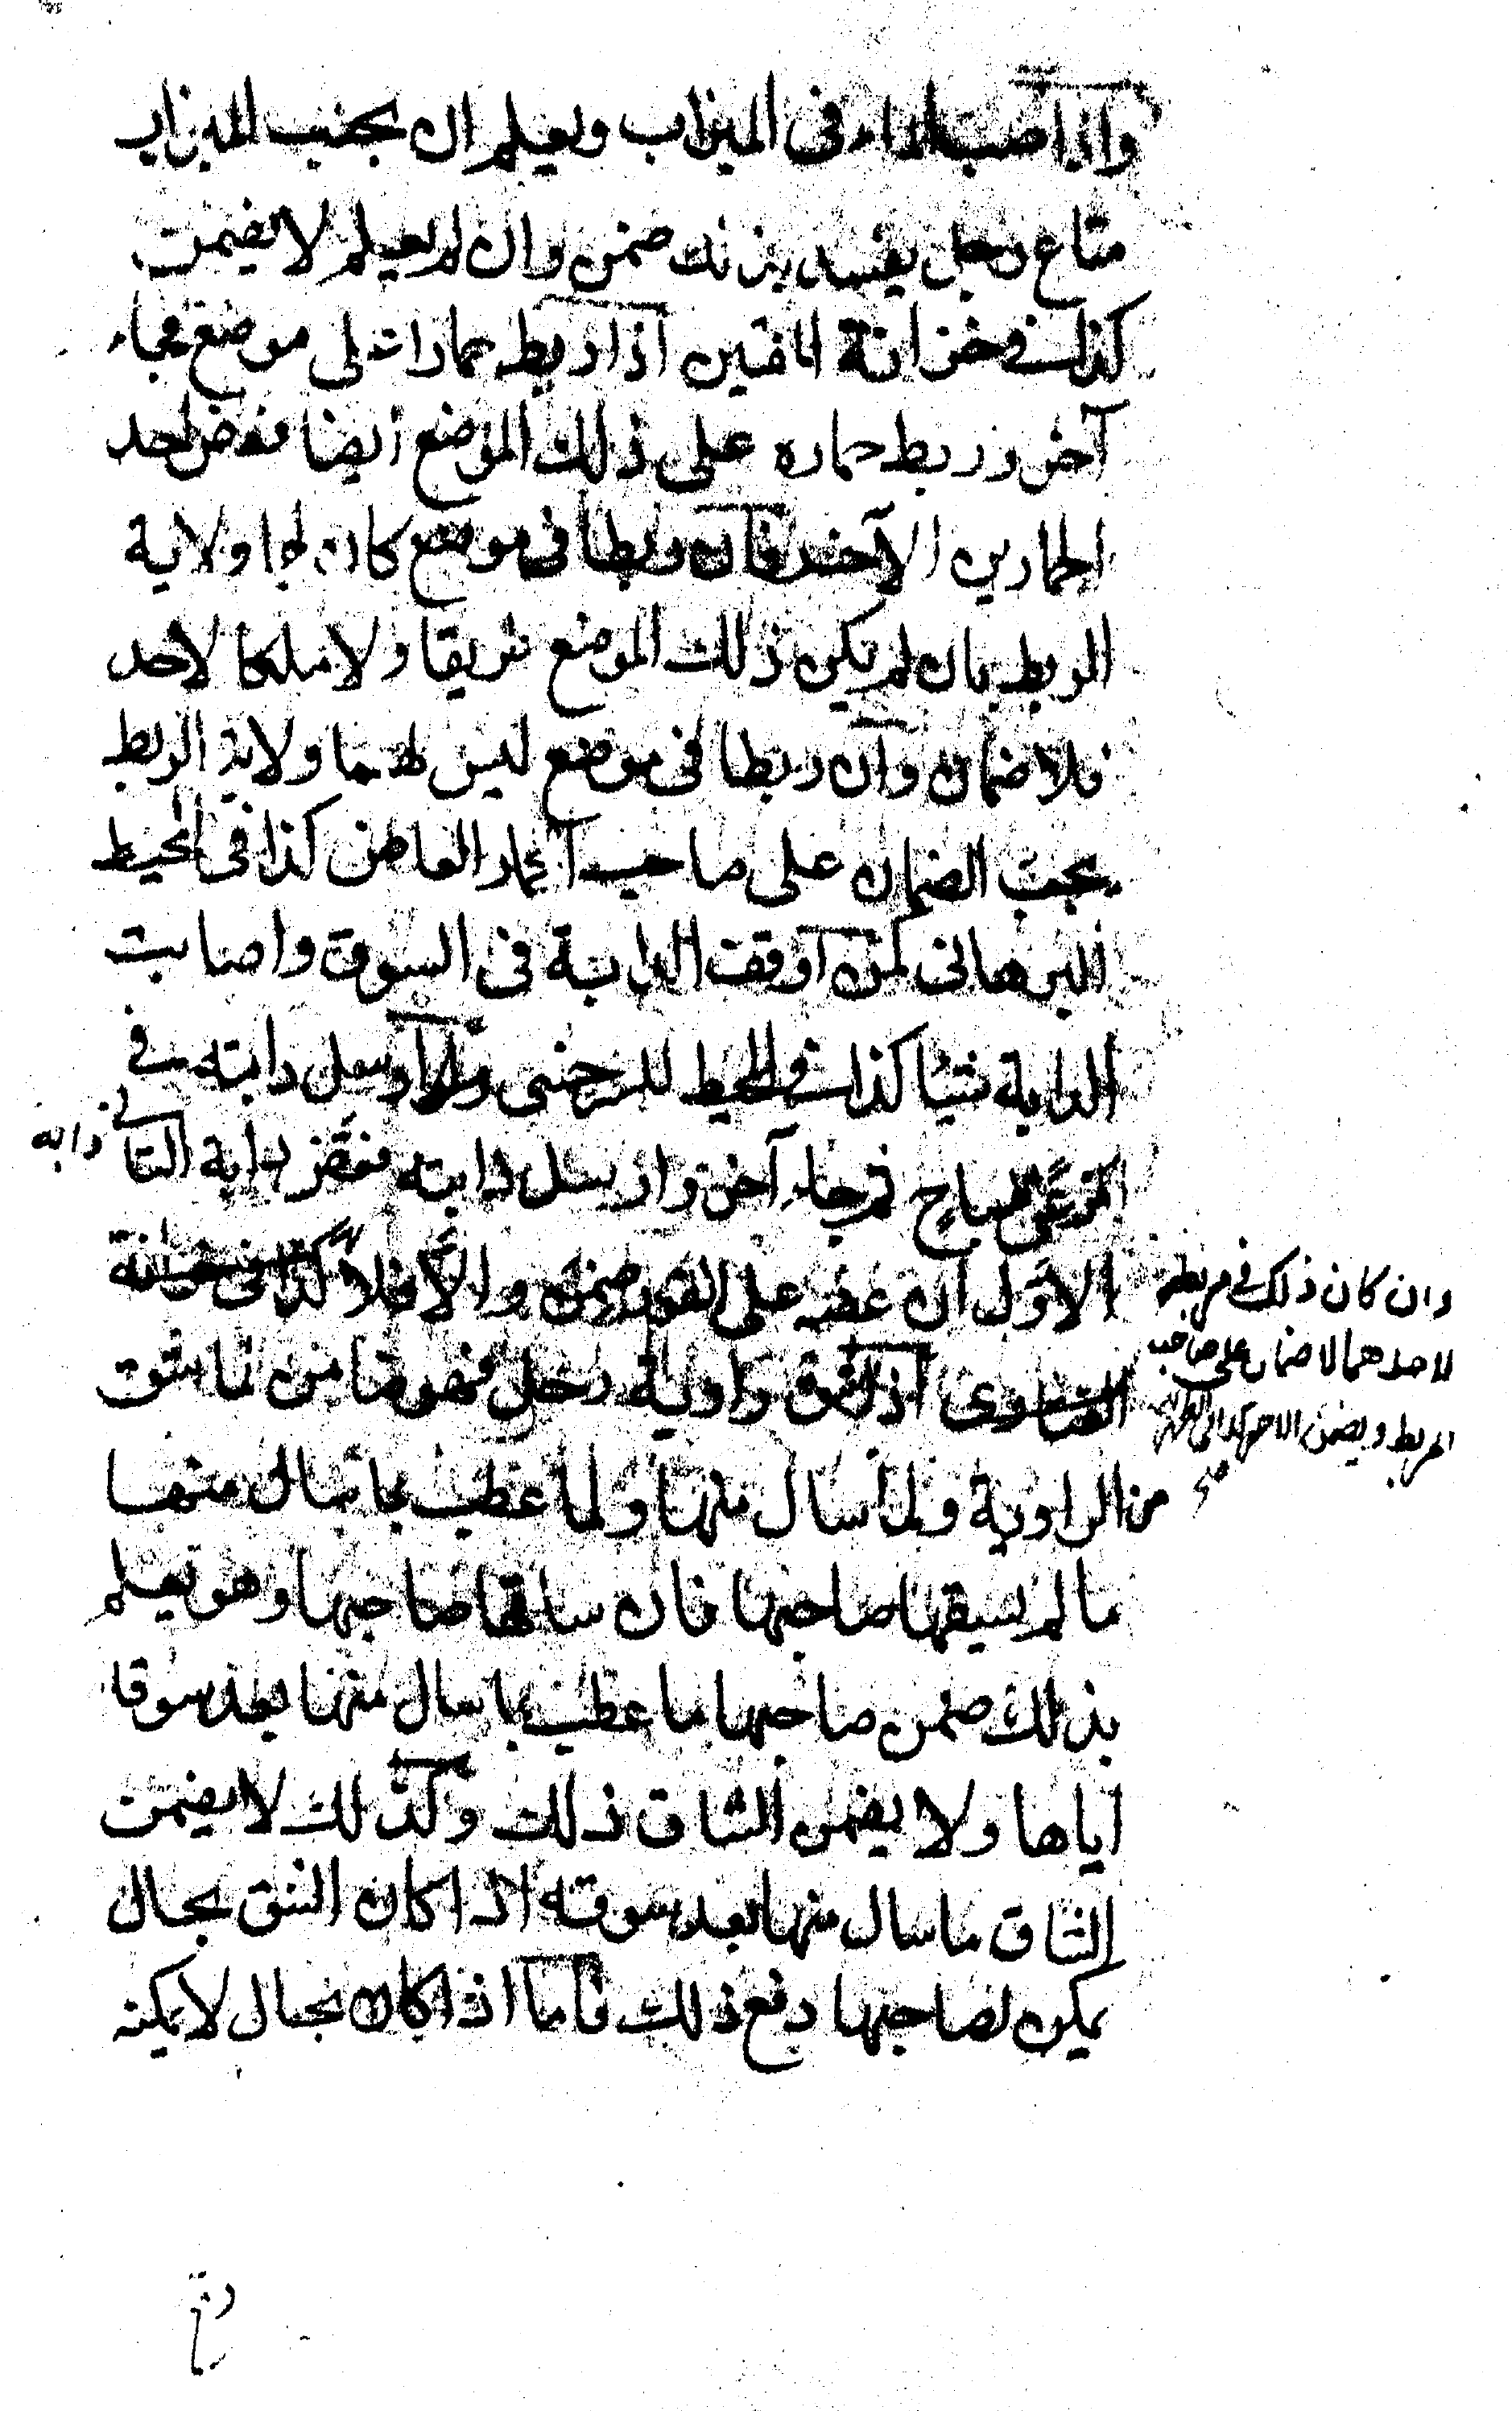 واذا صب الماء في الميزاب ويعلم ان بجنب الميزاب
متاع رجل يفسد بذلك ضمن وان لم يعلم لا يضمن
كذا في خزانة المفتين اذا ربط حمارا على موضع فجاء
آخر وربط حماره على ذلك الموضع ايضا فعض احد
الحمارين الآخر فان ربطا في موضع كان لهما ولاية
الربط بان لم يكن ذلك الموضع طريقا ولا ملكا لاحد
فلا ضمان وان ربطا في موضع ليس لهما ولاية الربط
يجب الضمان على صاحب الحمار العاض كذا في المحيط
البرهاني كمن اوقف الدابة في السوق واصابت
الدابة شيئا كذا في المحيط للسرخسي ولو ارسل دابته في
المرعى المباح ثم جاء آخر وارسل دابته فعض دابة الثاني دابة
الاول ان عضه على الفور ضمن والا فلا كذا في خزانة
وان كان ذلك في مربط
لاحدهما لا ضمان على صاحب
المربط ويضمن الآخر كذا في
صح
الفتاوى اذا شق راوية رجل فهو ضامن لما شق
من الراوية ولما سال منها ولما عطب بما سال منها
ما لم يسقها صاحبها فان ساقها صاحبها وهو يعلم
بذلك ضمن صاحبها ما عطب بما سال منها بعد سوقا
اياها ولا يضمن الشاق ذلك وكذلك لا يضمن
الشاق ما سال منها بعد سوقه اذا كان الشق بحال
يمكن لصاحبها دفع ذلك فاما اذا كان بحال لا يمكنه